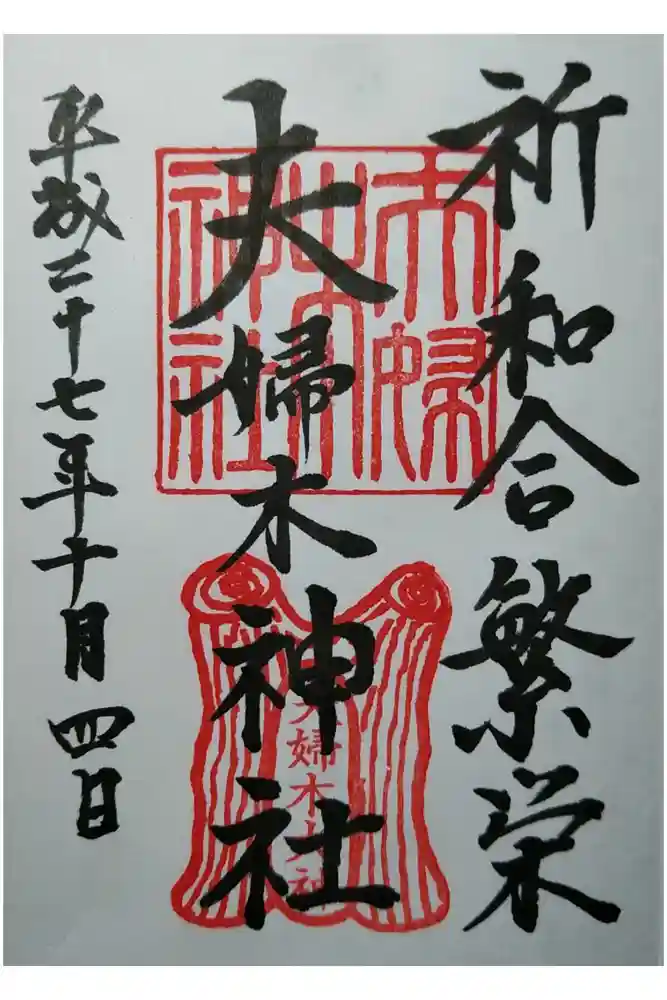 祈和合繁栄
夫婦木神社
平成二十七年十月四日
夫婦木大神